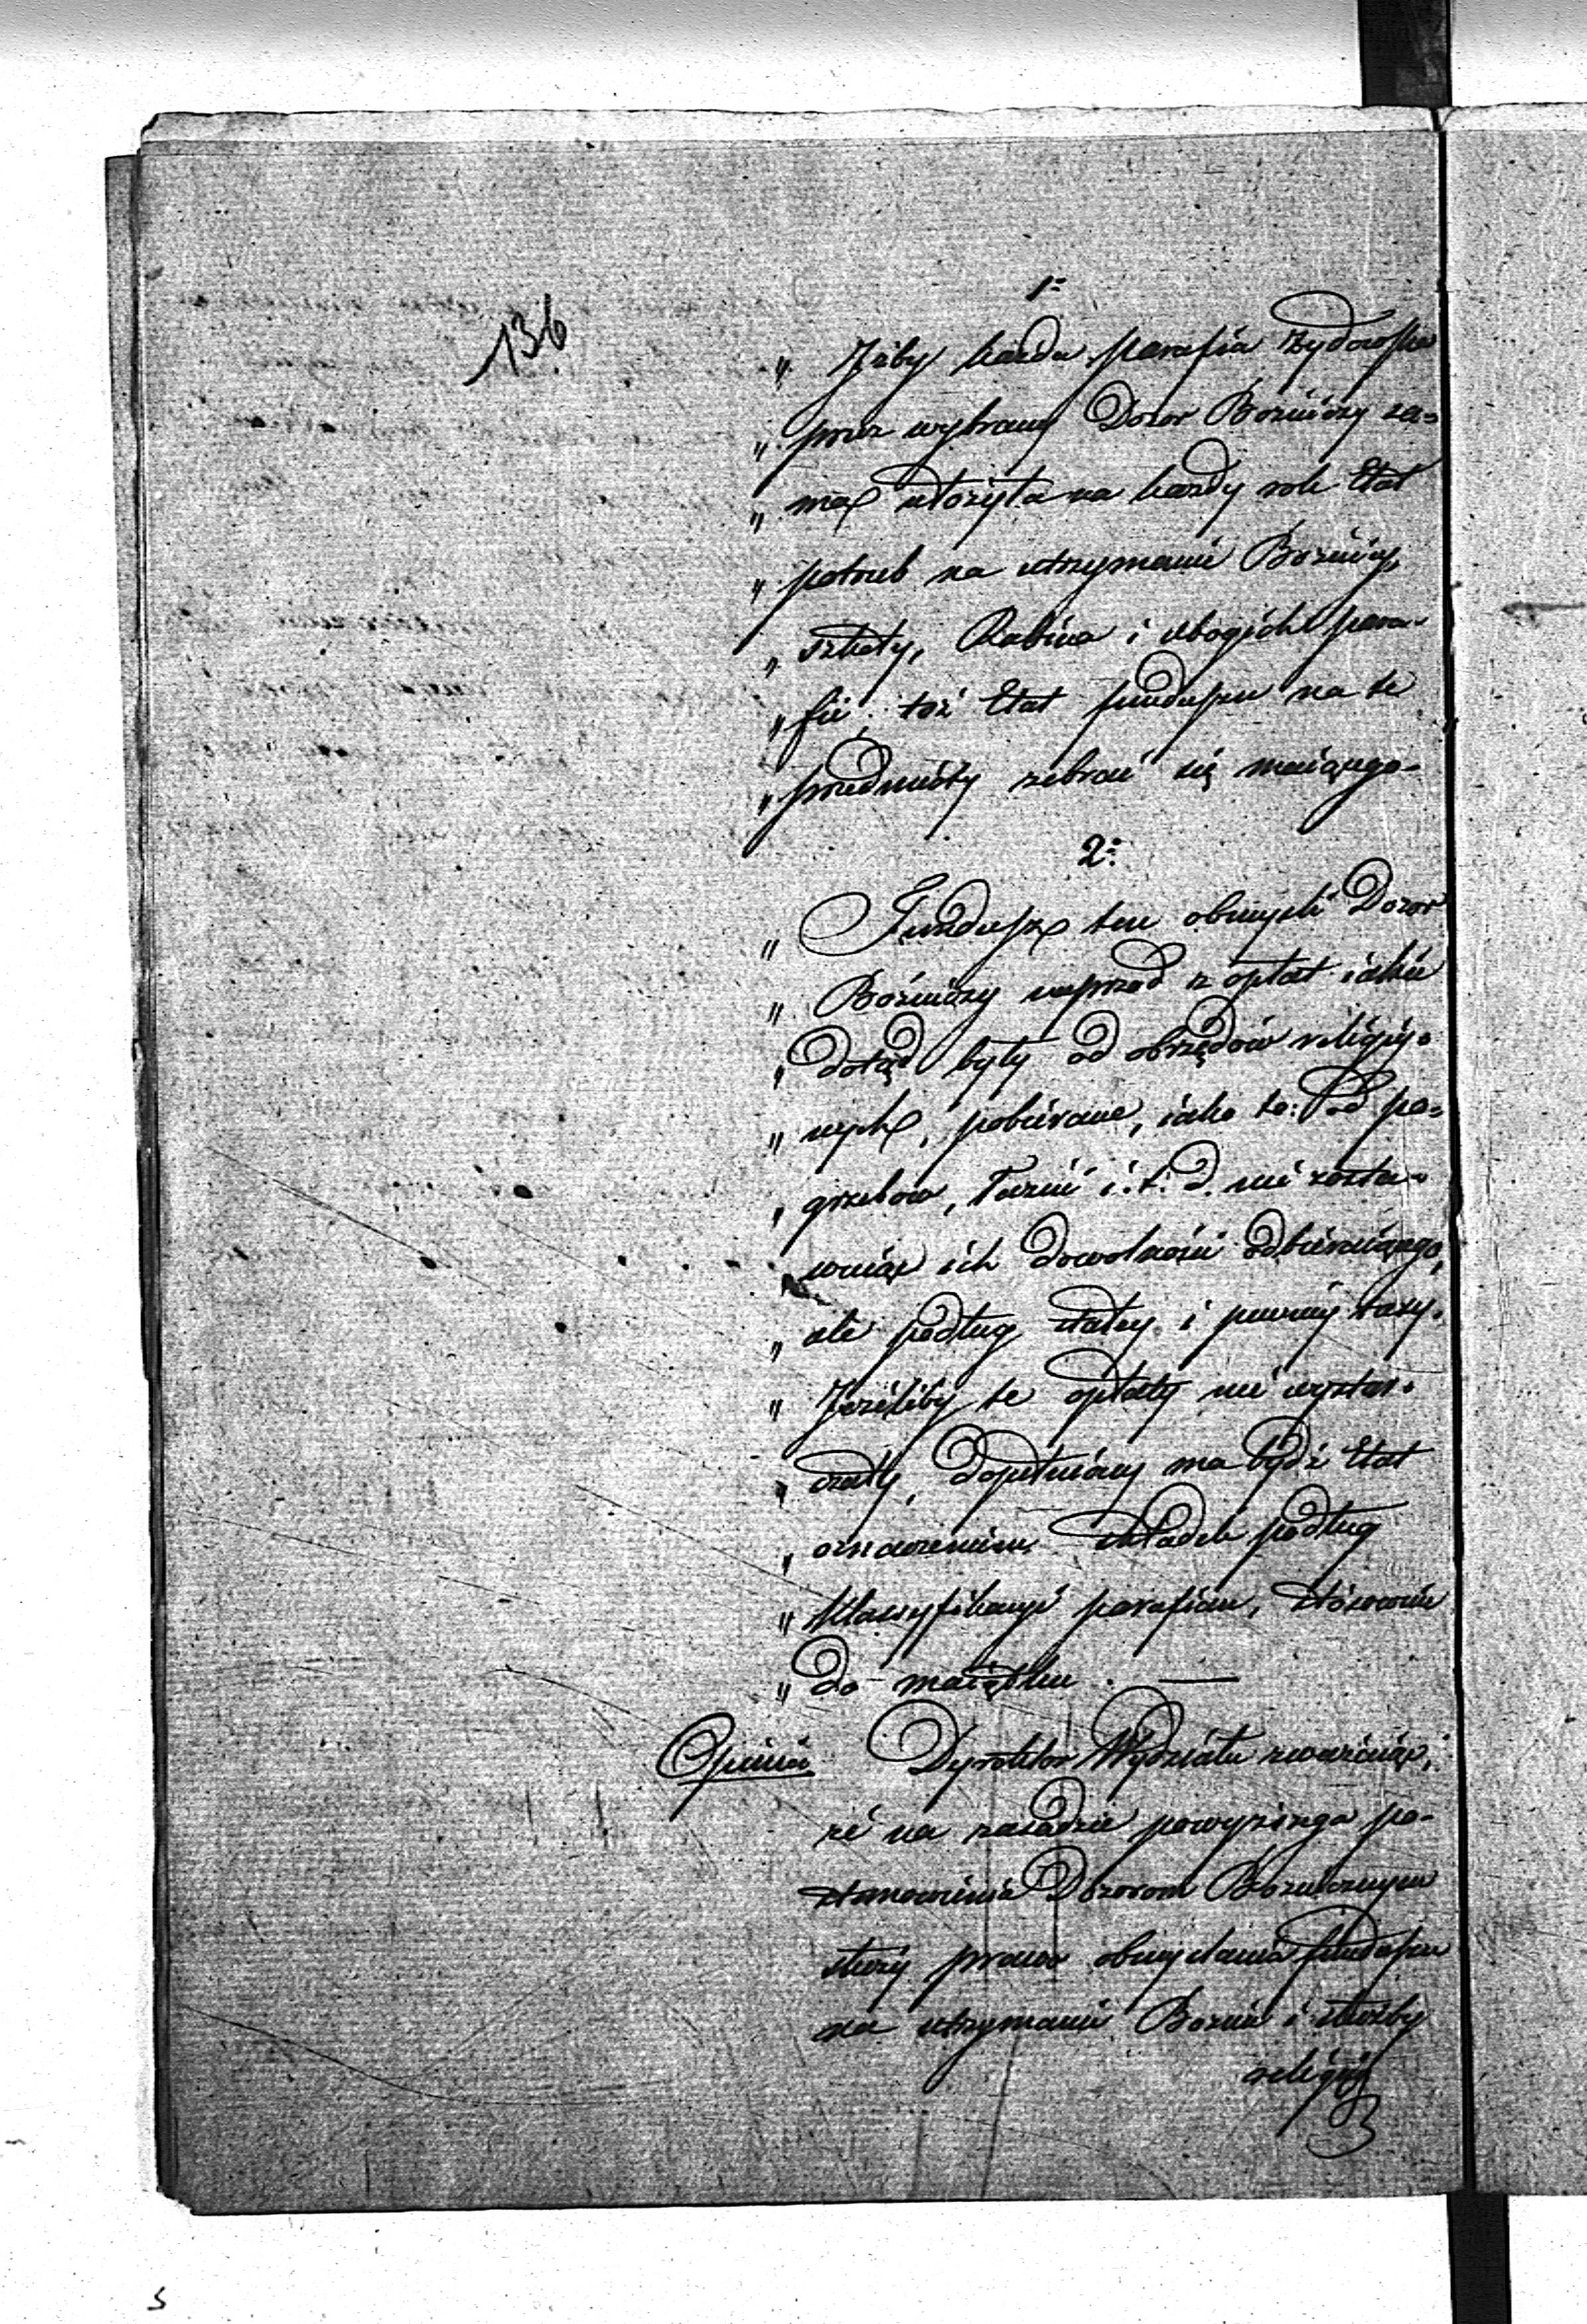 136
1=
„ Żeby każda parafia żydowska
„ przez wybrany Dozor Bożniczy za=
„ raz ułożyła na każdy rok Etat
„ potrzeb na utrzymanie Bożnicy,
„ szkoły, Rabina i ubogich para-
„ fii; toż Etat funduszu na te
„ przedmioty zebrać się maiącego-
2=
„ Fundusz ten obmyśli Dozor
„ Bożniczy naprzód z opłat iakie
„ dotąd były od obrzędów religiy=
„ nych, pobierane, iako to: Od po=
„ grzebow, Łazni i. t. d. nie zosta=
„ wuiąc ich dowolności odbieraiącego,
„ ale podług stałey i pewney taxy.
„ Jeżeliby te opłaty nie wystar=
„ czały, dopełniony ma bydź Etat
„ oznaczeniem składek podług
„ klassyfikacyi parafian, stósownie
„ do maiątku. —
Opinia Dyrektor Wydziału zważaiąc,
że na zasadzie powyższego po-
stanowienia Dozorom Bożniczym
służy prawo obmyślania funduszu
na utrzymanie Boznic i służby
religiy